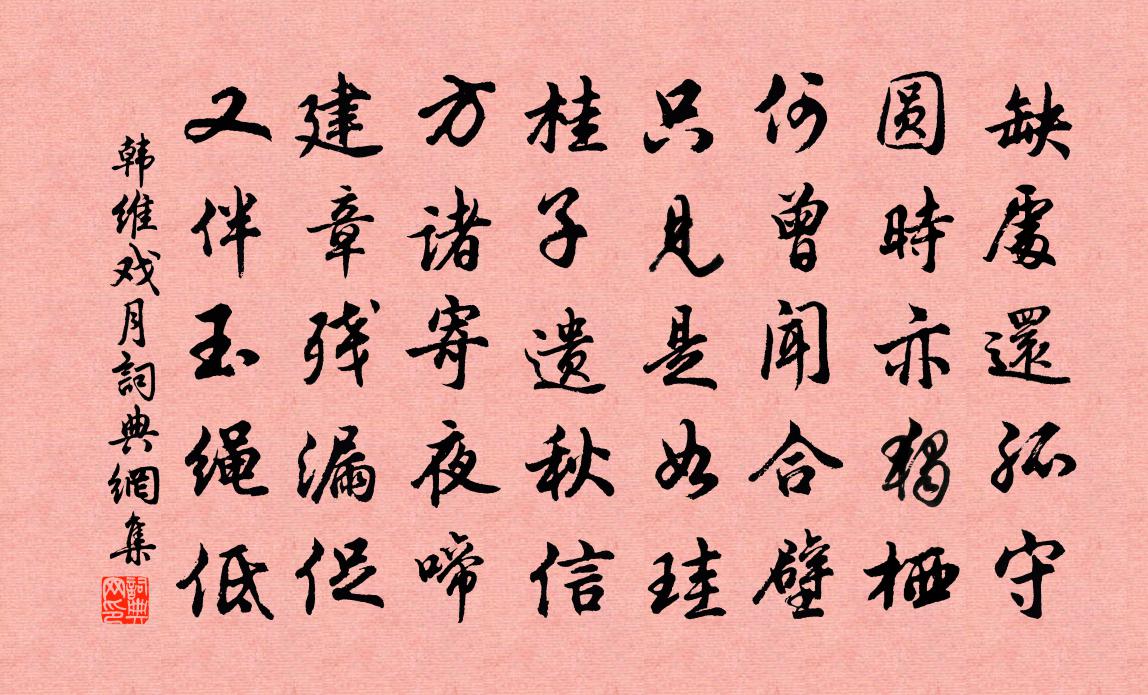 缺處還孤守
圆時亦獨栖
何曾闻合璧
只見是如珪
桂子遗秋信
方诸寄夜啼
建章残漏促
又伴玉绳低
韩维戏月詞典網集
詞典网印